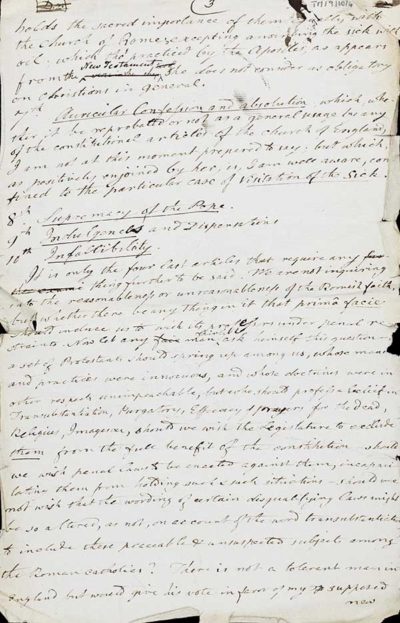 3
TM19/10/4
holds the sacred importance of them equally with
the Church of Rome, excepting anointing the sick with
oil, which tho' practised by the Apostles, as appears
from the New Testament, she does not consider as obligatory
on Christians in general.
7th Auricular Confession and absolution, which whe-
ther it be reprobated or not as a general usage by any
of the constitutional articles of the church of England,
I am not at this moment prepared to say, but which,
as positively enjoined by her, is, I am well aware, con-
fined to the particular case of Visitation of the Sick.
8th Supremacy of the Pope.
9th Indulgences and Dispensations
10th Infallibility.
It is only the four last articles that require any
thing further to be said. We are not inquiring
into the reasonableness or unreasonableness of the Romish faith,
but whether there be any thing in it that prima facie
should induce us to wish its professors under penal re-
straints. Now let any man ask himself this question—
a set of Protestants should spring up among us, whose morals
and practices were innoxious, and whose doctrines were in
other respects unimpeachable, but who should profess a belief in
Transubstantiation, Purgatory, Efficacy of prayers for the Dead,
Relics, Images, should we wish the Legislature to exclude
them from the full benefit of the constitution — should
we wish penal Laws to be enacted against them, incapaci-
tating them from holding such & such situations — should we
not wish that the wording of certain disqualifying Laws might
be so altered, as not, on account of the word transubstantiation
to include these peaceable & unsuspected subjects among
the Roman Catholics? There is not a tolerant man in
England but would give his vote in favor of my supposed
new